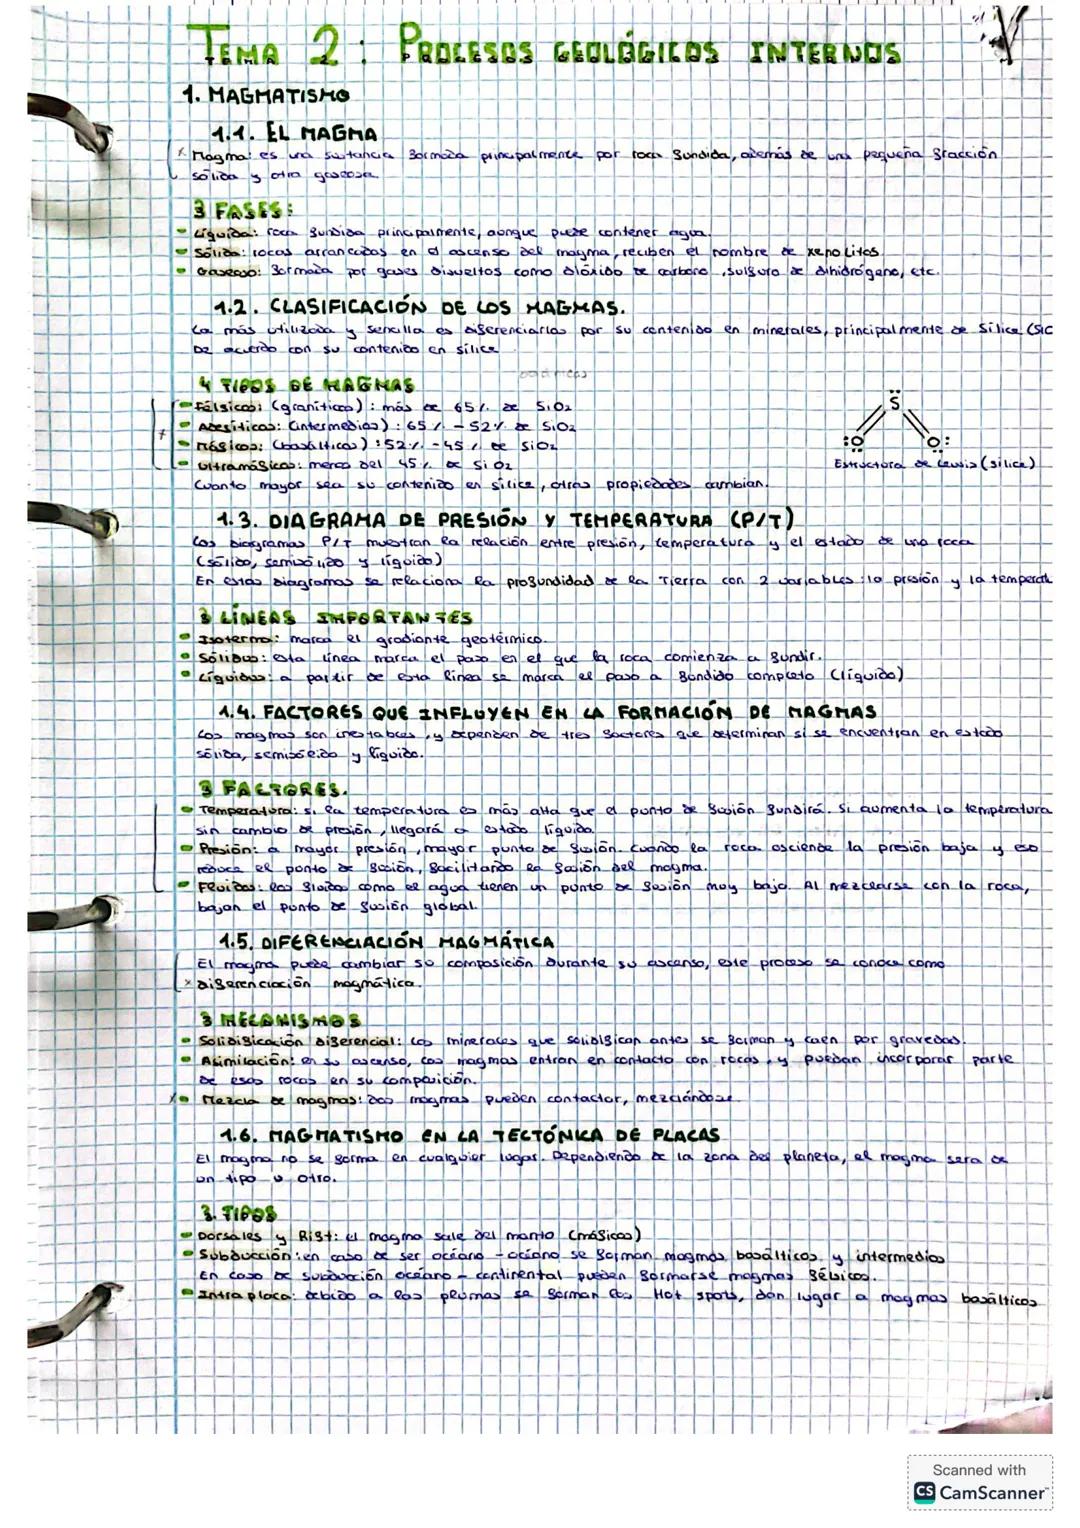 TEMA 2: PROCESOS GEOLÓGICOS INTERNOS
1. MAGMATISMO
1.1. EL MAGMA
Magma: es una sustancia formada principalmente por roca fundida, además de una pequeña fracción
sólida y otra gaseosa.
3 FASES:
Líquida: roca fundida principalmente, aunque puede contener agua.
Sólida: rocas arrancadas en el ascenso del magma, reciben el nombre de xenolitos
Gaseoso: formada por gases disueltos como dióxido de carbono, sulfuro de dihidrógeno, etc.
1.2. CLASIFICACIÓN DE LOS MAGMAS.
La más utilizada y sencilla es diferenciarlas por su contenido en minerales, principalmente de sílice (SiO
De acuerdo con su contenido en sílice
4 TIPOS DE MAGMAS
Félsicos: (graníticos): más de 65% de SiO2
Adesíticos: (intermedios): 65% - 52% de SiO2
Máficos: (basálticos): 52% - 45% de SiO2
Ultramáficos: menos del 45% de SiO2
Cuanto mayor sea su contenido en sílice, otras propiedades cambian.
S
:O O:
Estructura de Lewis (sílice)
1.3. DIAGRAMA DE PRESIÓN Y TEMPERATURA (P/T)
Los diagramas P/T muestran la relación entre presión, temperatura y el estado de una roca
(sólido, semisólido y líquido)
En estos diagramas se relaciona la profundidad de la Tierra con 2 variables: la presión y la temperat
3 LÍNEAS IMPORTANTES
Isoterma: marca el gradiante geotérmico.
Sólidus: esta línea marca el paso en el que la roca comienza a fundir.
Líquidus: a partir de esta línea se marca el paso a fundido completo (líquido)
1.4. FACTORES QUE INFLUYEN EN LA FORMACIÓN DE MAGMAS
Los magmas son inestables, y dependen de tres factores que determinan si se encuentran en estado
sólida, semisólido y líquido.
3 FACTORES.
Temperatura: si la temperatura es más alta que el punto de fusión fundirá. Si aumenta la temperatura
sin cambio de presión, llegará a estado líquido
Presión: a mayor presión, mayor punto de fusión. Cuando la roca asciende la presión baja y eso
reduce el punto de fusión, facilitando la fusión del magma.
Fluidos: los fluidos como el agua tienen un punto de fusión muy bajo. Al mezclarse con la roca,
bajan el punto de fusión global.
1.5. DIFERENCIACIÓN MAGMÁTICA
El magma puede cambiar su composición durante su ascenso, este proceso se conoce como
diferenciación magmática.
3 MECANISMOS
Solidificación diferencial: los minerales que solidifican antes se forman y caen por gravedad.
Asimilación: en su ascenso, los magmas entran en contacto con rocas, y puedan incorporar parte
de esas rocas en su composición.
Mezcla de magmas: dos magmas pueden contactar, mezclándose
1.6. MAGMATISMO EN LA TECTÓNICA DE PLACAS
El magma no se forma en cualquier lugar. Dependiendo de la zona del planeta, el magma sera de
un tipo u otro.
3. TIPOS
Dorsales y Rift: el magma sale del manto (máficos)
Subducción: en caso de ser océano - océano se forman magmas basálticos y intermedios
En caso de subducción océano - continental pueden formarse magmas félsicos.
Intraplaca: debido a las plumas se forman los Hot spots, dan lugar a magmas basálticos
Scanned with
CS CamScanner